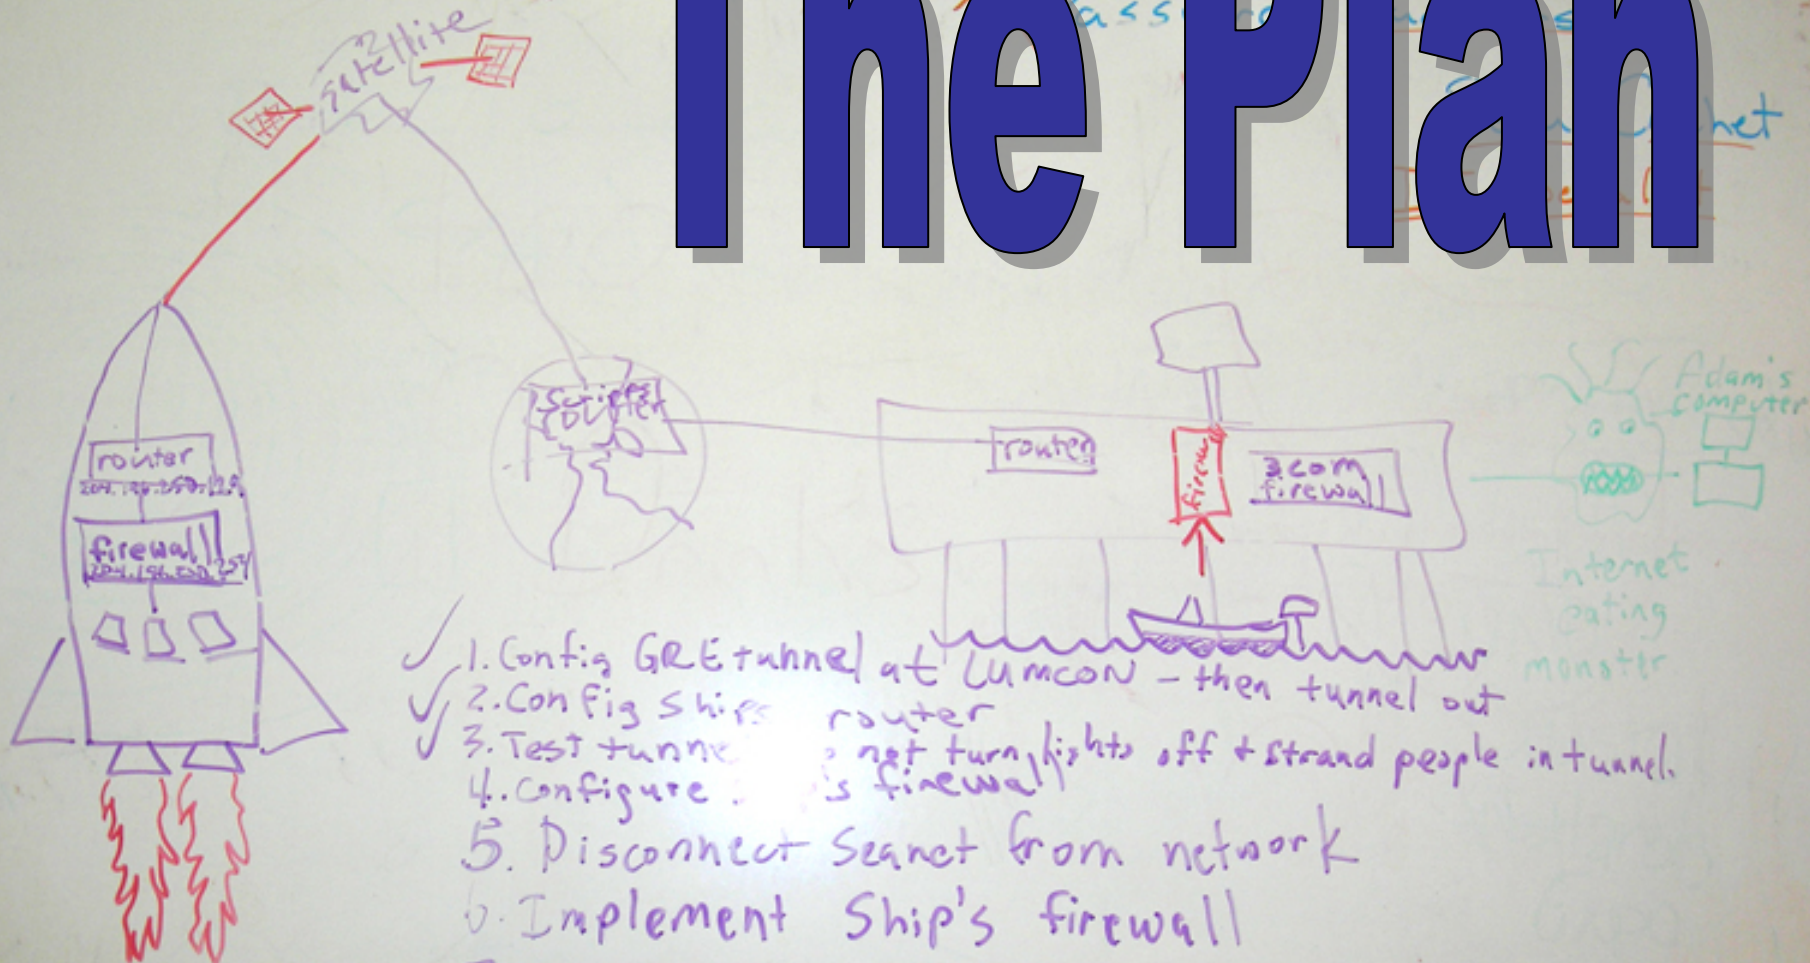 The Plan
satellite
router
firewall
Scripps
router
router
firewall
3com
firewall
Adam's
computer
Internet
eating
monster
1. Config GRE tunnel at LUMCON - then tunnel out
2. Config ships router
3. Test tunne not turn lights off + strand people in tunnel.
4. Configure 's firewall
5. Disconnect Seanet from network
6. Implement Ship's firewall